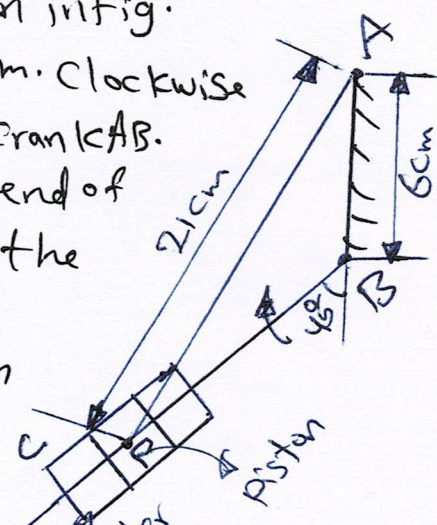 n in fig.
m. Clockwise
Crank AB.
end of
the
n
A
21cm
6cm
B
45°
C
P
Piston